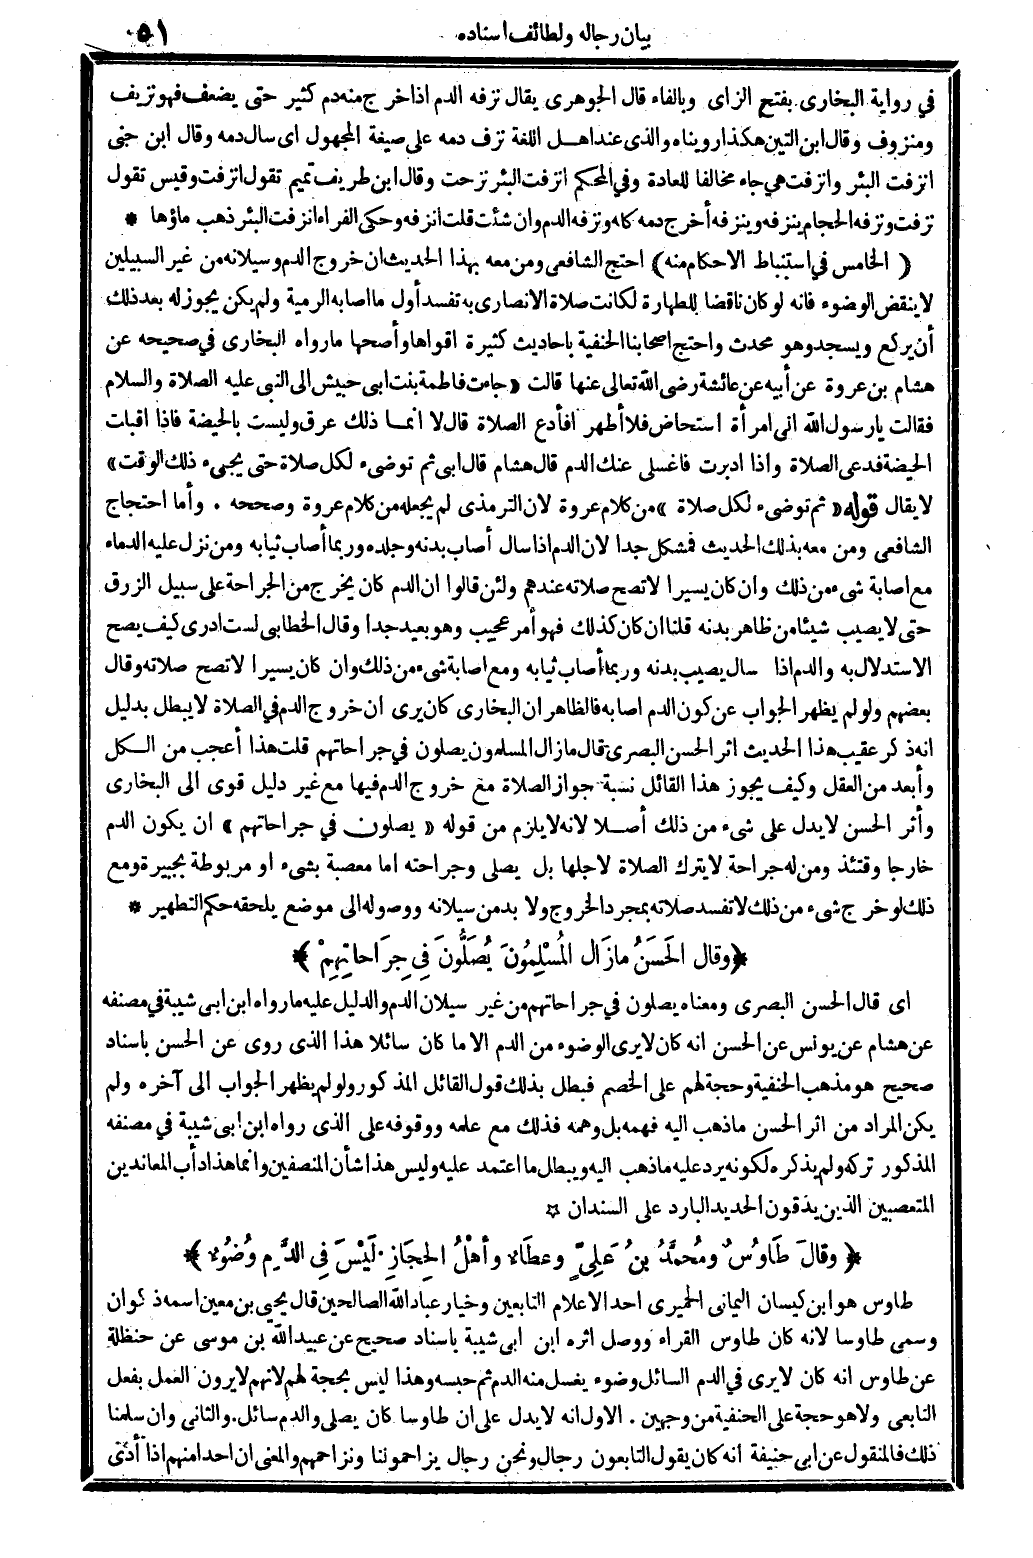 بيان رجاله ولطائف اسناده
٥١
في رواية البخارى بفتح الزاى وبالفاء قال الجوهرى يقال نزفه الدم اذا خرج منه دم كثير حتى يضعف فهو نزيف
ومنزوف وقال ابن التين هكذا رويناه والذى عند اهــل اللغة نزف دمه على صيغة المجهول اى سال دمه وقال ابن جنى
انزفت البئر وانزفت هي جاء مخالفا للعادة وفي المحكم انزفت البئر نزحت وقال ابن طريف تميم تقول انزفت وقيس تقول
نزفت ونزفه الحجام ينزفه وينزفه أخرج دمه كله ونزفه الدم وان شئت قلت انزفه وحكى الفراء انزفت البئر ذهب ماؤها *
( الخامس في استنباط الاحكام منه ) احتج الشافعى ومن معه بهذا الحديث ان خروج الدم وسيلانه من غير السبيلين
لا ينقض الوضوء فانه لو كان ناقضا للطهارة لكانت صلاة الانصارى به تفسد أول ما اصابه الرمية ولم يكن يجوز له بعد ذلك
أن يركع ويسجد وهو محدث واحتج اصحابنا الحنفية باحاديث كثيرة اقواها وأصحها مارواه البخارى في صحيحه عن
هشام بن عروة عن أبيه عن عائشة رضى الله تعالى عنها قالت « جاءت فاطمة بنت ابى حبيش الى النبى عليه الصلاة والسلام
فقالت يارسول الله انى امرأة استحاض فلا أطهر افأدع الصلاة قال لا انمــا ذلك عرق وليست بالحيضة فاذا اقبلت
الحيضة فدعى الصلاة واذا ادبرت فاغسلى عنك الدم قال هشام قال ابى ثم توضىء لكل صلاة حتى يجىء ذلك الوقت »
لا يقال قوله « ثم توضىء لكل صلاة » من كلام عروة لان الترمذى لم يجعله من كلام عروة وصححه . وأما احتجاج
الشافعى ومن معه بذلك الحديث فمشكل جدا لان الدم اذا سال أصاب بدنه وجلده وربما أصاب ثيابه ومن نزل عليه الدماء
مع اصابة شىء من ذلك وان كان يسيرا لا تصح صلاته عندهم ولئن قالوا ان الدم كان يخرج من الجراحة على سبيل الزرق
حتى لا يصيب شيئا من ظاهر بدنه قلنا ان كان كذلك فهو أمر عجيب وهو بعيد جدا وقال الخطابى لست ادرى كيف يصح
الاستدلال به والدم اذا سال يصيب بدنه وربما أصاب ثيابه ومع اصابة شىء من ذلك وان كان يسيرا لا تصح صلاته وقال
بعضهم ولو لم يظهر الجواب عن كون الدم اصابه فالظاهر ان البخارى كان يرى ان خروج الدم في الصلاة لا يبطل بدليل
انه ذكر عقيب هذا الحديث اثر الحسن البصرى قال مازال المسلمون يصلون في جراحاتهم قلت هذا أعجب من الــكل
وأبعد من العقل وكيف يجوز هذا القائل نسبة جواز الصلاة مع خروج الدم فيها مع غير دليل قوى الى البخارى
وأثر الحسن لا يدل على شىء من ذلك أصــلا لانه لا يلزم من قوله « يصلون في جراحاتهم » ان يكون الدم
خارجا وقتئذ ومن له جراحة لا يترك الصلاة لاجلها بل يصلى وجراحته اما معصبة بشىء او مربوطة بجبيرة ومع
ذلك لو خرج شىء من ذلك لا تفسد صلاته بمجرد الخروج ولا بد من سيلانه ووصوله الى موضع يلحقه حكم التطهير *
﴿ وقال الحَسَنُ مازَالَ المُسْلِمُونَ يُصَلُّونَ فِي جِرَاحاتِهِمْ ﴾
اى قال الحسن البصرى ومعناه يصلون في جراحاتهم من غير سيلان الدم والدليل عليه مارواه ابن ابى شيبة في مصنفه
عن هشام عن يونس عن الحسن انه كان لا يرى الوضوء من الدم الا ما كان سائلا هذا الذى روى عن الحسن باسناد
صحيح هو مذهب الحنفية وحجة لهم على الخصم فبطل بذلك قول القائل المذكور ولو لم يظهر الجواب الى آخره ولم
يكن المراد من اثر الحسن ماذهب اليه فهمه بل وهمه فذلك مع علمه ووقوفه على الذى رواه ابن ابى شيبة في مصنفه
المذكور تركه ولم يذكره لكونه يرد عليه ماذهب اليه ويبطل ما اعتمد عليه وليس هذا شأن المنصفين وانما هذا دأب المعاندين
المتعصبين الذين يذقون الحديد البارد على السندان ☆
﴿ وقالَ طَاوُسٌ ومُحمَّدُ بنُ عَلِيٍّ وعطَاء وأهْلُ الحِجَازِ لَيْسَ فِي الدَّمِ وُضُوء ﴾
طاوس هو ابن كيسان اليمانى الحميرى احد الاعلام التابعين وخيار عباد الله الصالحين قال يحيى بن معين اسمه ذكوان
وسمى طاوسا لانه كان طاوس القراء ووصل اثره ابن ابى شيبة باسناد صحيح عن عبيد الله بن موسى عن حنظلة
عن طاوس انه كان لا يرى في الدم السائل وضوء يغسل منه الدم ثم حبسه وهذا ليس بحجة لهم لانهم لا يرون العمل بفعل
التابعى ولا هو حجة على الحنفية من وجهين . الاول انه لا يدل على ان طاوسا كان يصلى والدم سائل . والثانى وان سلمنا
ذلك فالمنقول عن ابى حنيفة انه كان يقول التابعون رجال ونحن رجال يزاحموننا ونزاحمهم والمعنى ان احدا منهم اذا أدى